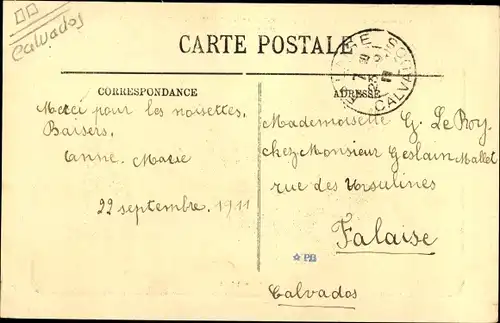 Calvados
CARTE POSTALE
CORRESPONDANCE
ADRESSE
CALVADOS
Merci pour les noisettes.
Baisers.
Anne-Marie
22 septembre 1911
Mademoiselle G. Le Roy
chez Monsieur Geslain Mallet
rue des Ursulines
Falaise
Calvados
PB